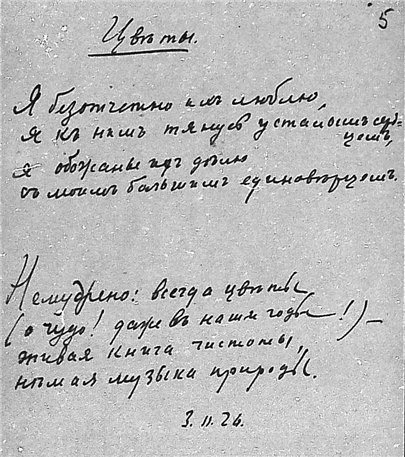 5
Цвѣты.
Я безотчетно ихъ люблю,
Я къ нимъ тянусь усталымъ серд-
цемъ,
я обожанье ихъ дѣлю
съ моимъ большимъ единовѣрцемъ.
Немудрено: всегда цвѣты
(о чудо! даже въ наши годы!) –
живая книга чистоты,
нѣмая музыка природы.
3.II.26.